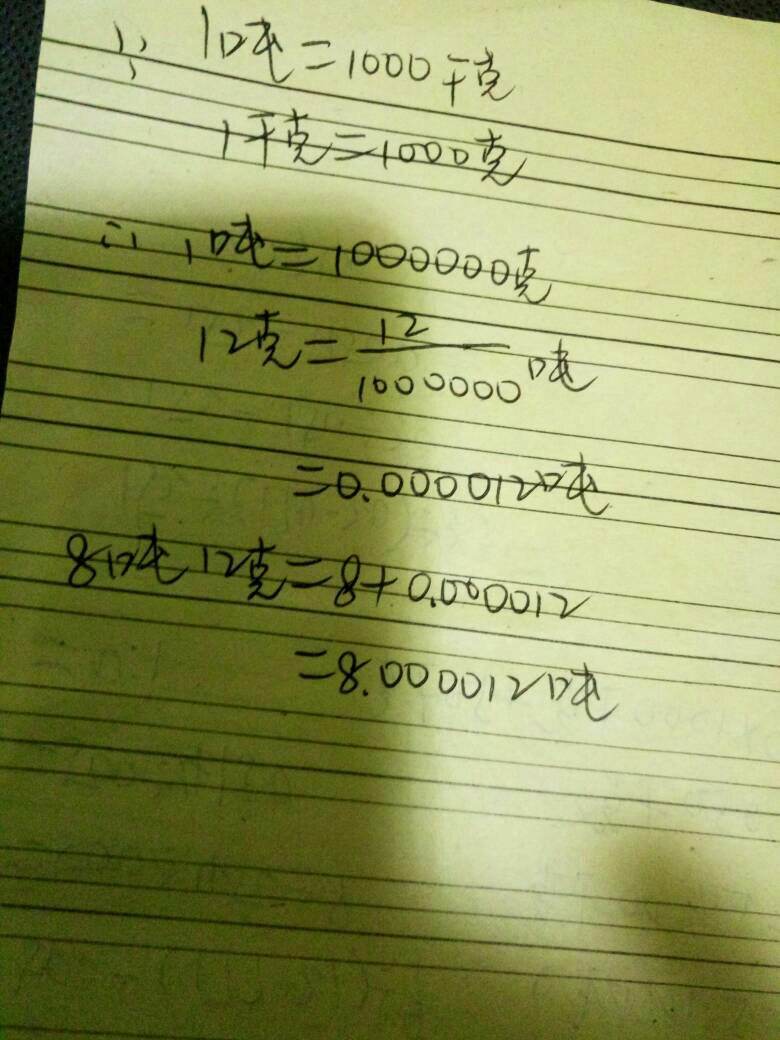 ∵ 1吨=1000千克
1千克=1000克
∴ 1吨=1000000克
12克=12/1000000吨
=0.000012吨
8吨12克=8+0.000012
=8.000012吨